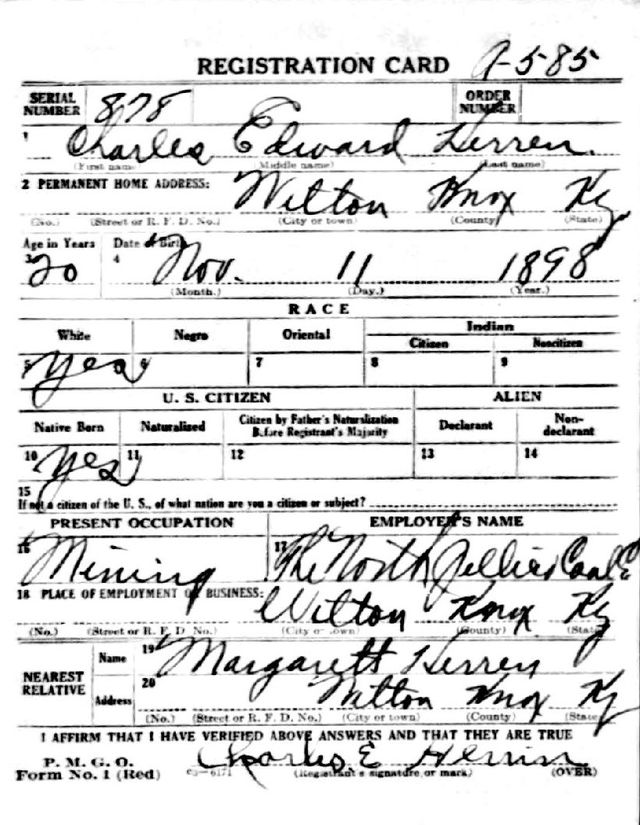 REGISTRATION CARD A-585
SERIAL NUMBER 878 ORDER NUMBER
1 Charles Edward Herren
(First name) (Middle name) (Last name)
2 PERMANENT HOME ADDRESS: Wilton Knox Ky
(No.) (Street or R. F. D. No.) (City or town) (County) (State)
Age in Years Date of Birth
3 20 4 Nov. 11 1898
(Month.) (Day.) (Year.)
RACE
White Negro Oriental Indian
Citizen Noncitizen
5 Yes 6 7 8 9
U. S. CITIZEN ALIEN
Native Born Naturalized Citizen by Father's Naturalization Before Registrant's Majority Declarant Non-declarant
10 Yes 11 12 13 14
15
If not a citizen of the U. S., of what nation are you a citizen or subject?
PRESENT OCCUPATION EMPLOYER'S NAME
16 Mining 17 The North Jellico Coal C
18 PLACE OF EMPLOYMENT OR BUSINESS: Wilton Knox Ky
(No.) (Street or R. F. D. No.) (City or town) (County) (State)
NEAREST RELATIVE Name 19 Margarett Herren
Address 20 Wilton Knox Ky
(No.) (Street or R. F. D. No.) (City or town) (County) (State)
I AFFIRM THAT I HAVE VERIFIED ABOVE ANSWERS AND THAT THEY ARE TRUE
P. M. G. O.
Form No. 1 (Red) 03-6171 Charles E Herrin
(Registrant's signature or mark) (OVER)